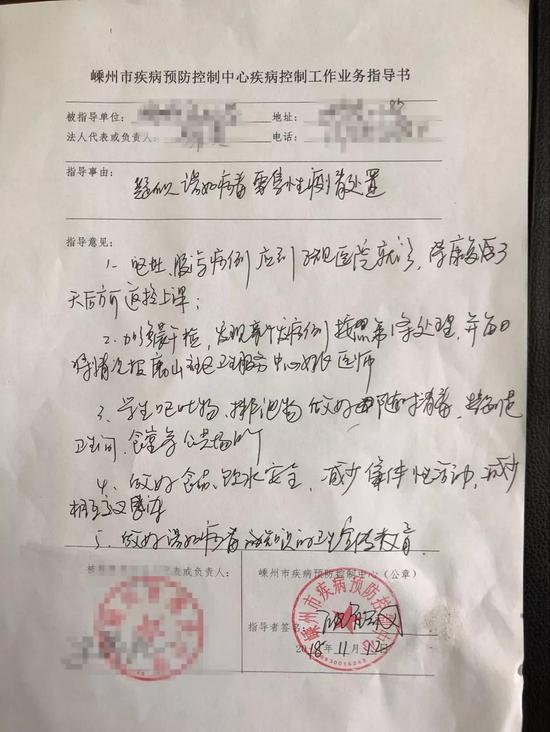 嵊州市疾病预防控制中心疾病控制工作业务指导书
被指导单位： 地址：
法人代表或负责人： 电话：
指导事由：
疑似诺如病毒聚集性疫情处置
指导意见：
1、呕吐、腹泻病例应到正规医院就诊，康复后3
天后方可返校上课；
2、加强晨午检，发现新发病例按照第1条处理，并每日
将情况报 社区卫生服务中心 医师
3、学生呕吐物、排泄物做好 随时消毒，特别是
卫生间、食堂等公共场所
4、做好食品、饮水安全，减少集体性活动，减少
相互交叉感染
5、做好诺如病毒 知识的卫生宣传教育．
被指导 代表或负责人： 嵊州市疾病预防控制中心（公章）
指导者签名：
嵊州市疾病预防控制中心
2018年11月12日